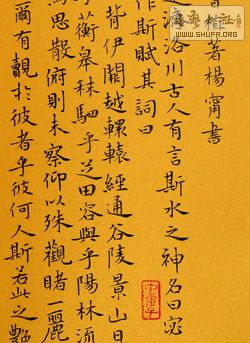 著楊甯書
濟洛川古人有言斯水之神名曰宓
作斯賦其詞曰
背伊闕越轘轅經通谷陵景山日
乎蘅皋秣駟乎芝田容與乎陽林流
焉思散俯則未察仰以殊觀睹一麗
爾有覿於彼者乎彼何人斯若此之艷
WWW.SHUFR.ORG